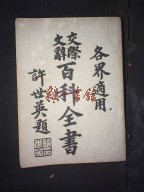 各界適用
交際
文辭
百科全書
許世英題